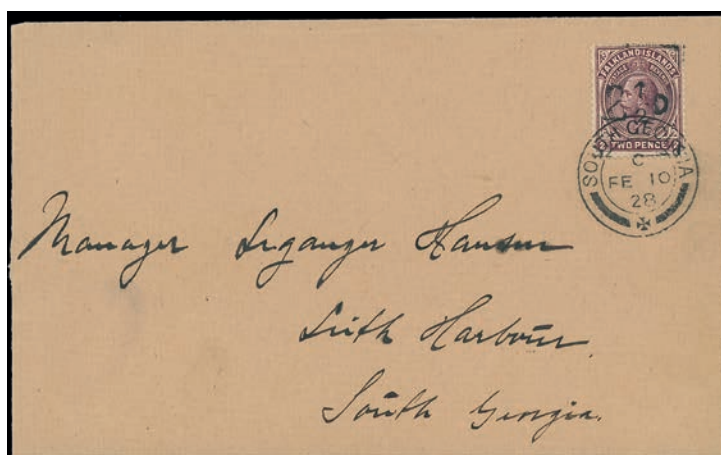 FALKLAND ISLANDS
POSTAGE REVENUE
2½D
2 TWO PENCE 2
SOUTH GEORGIA
C
FE 10
28
Manager Leganger Hansen
Leith Harbour,
South Georgia.